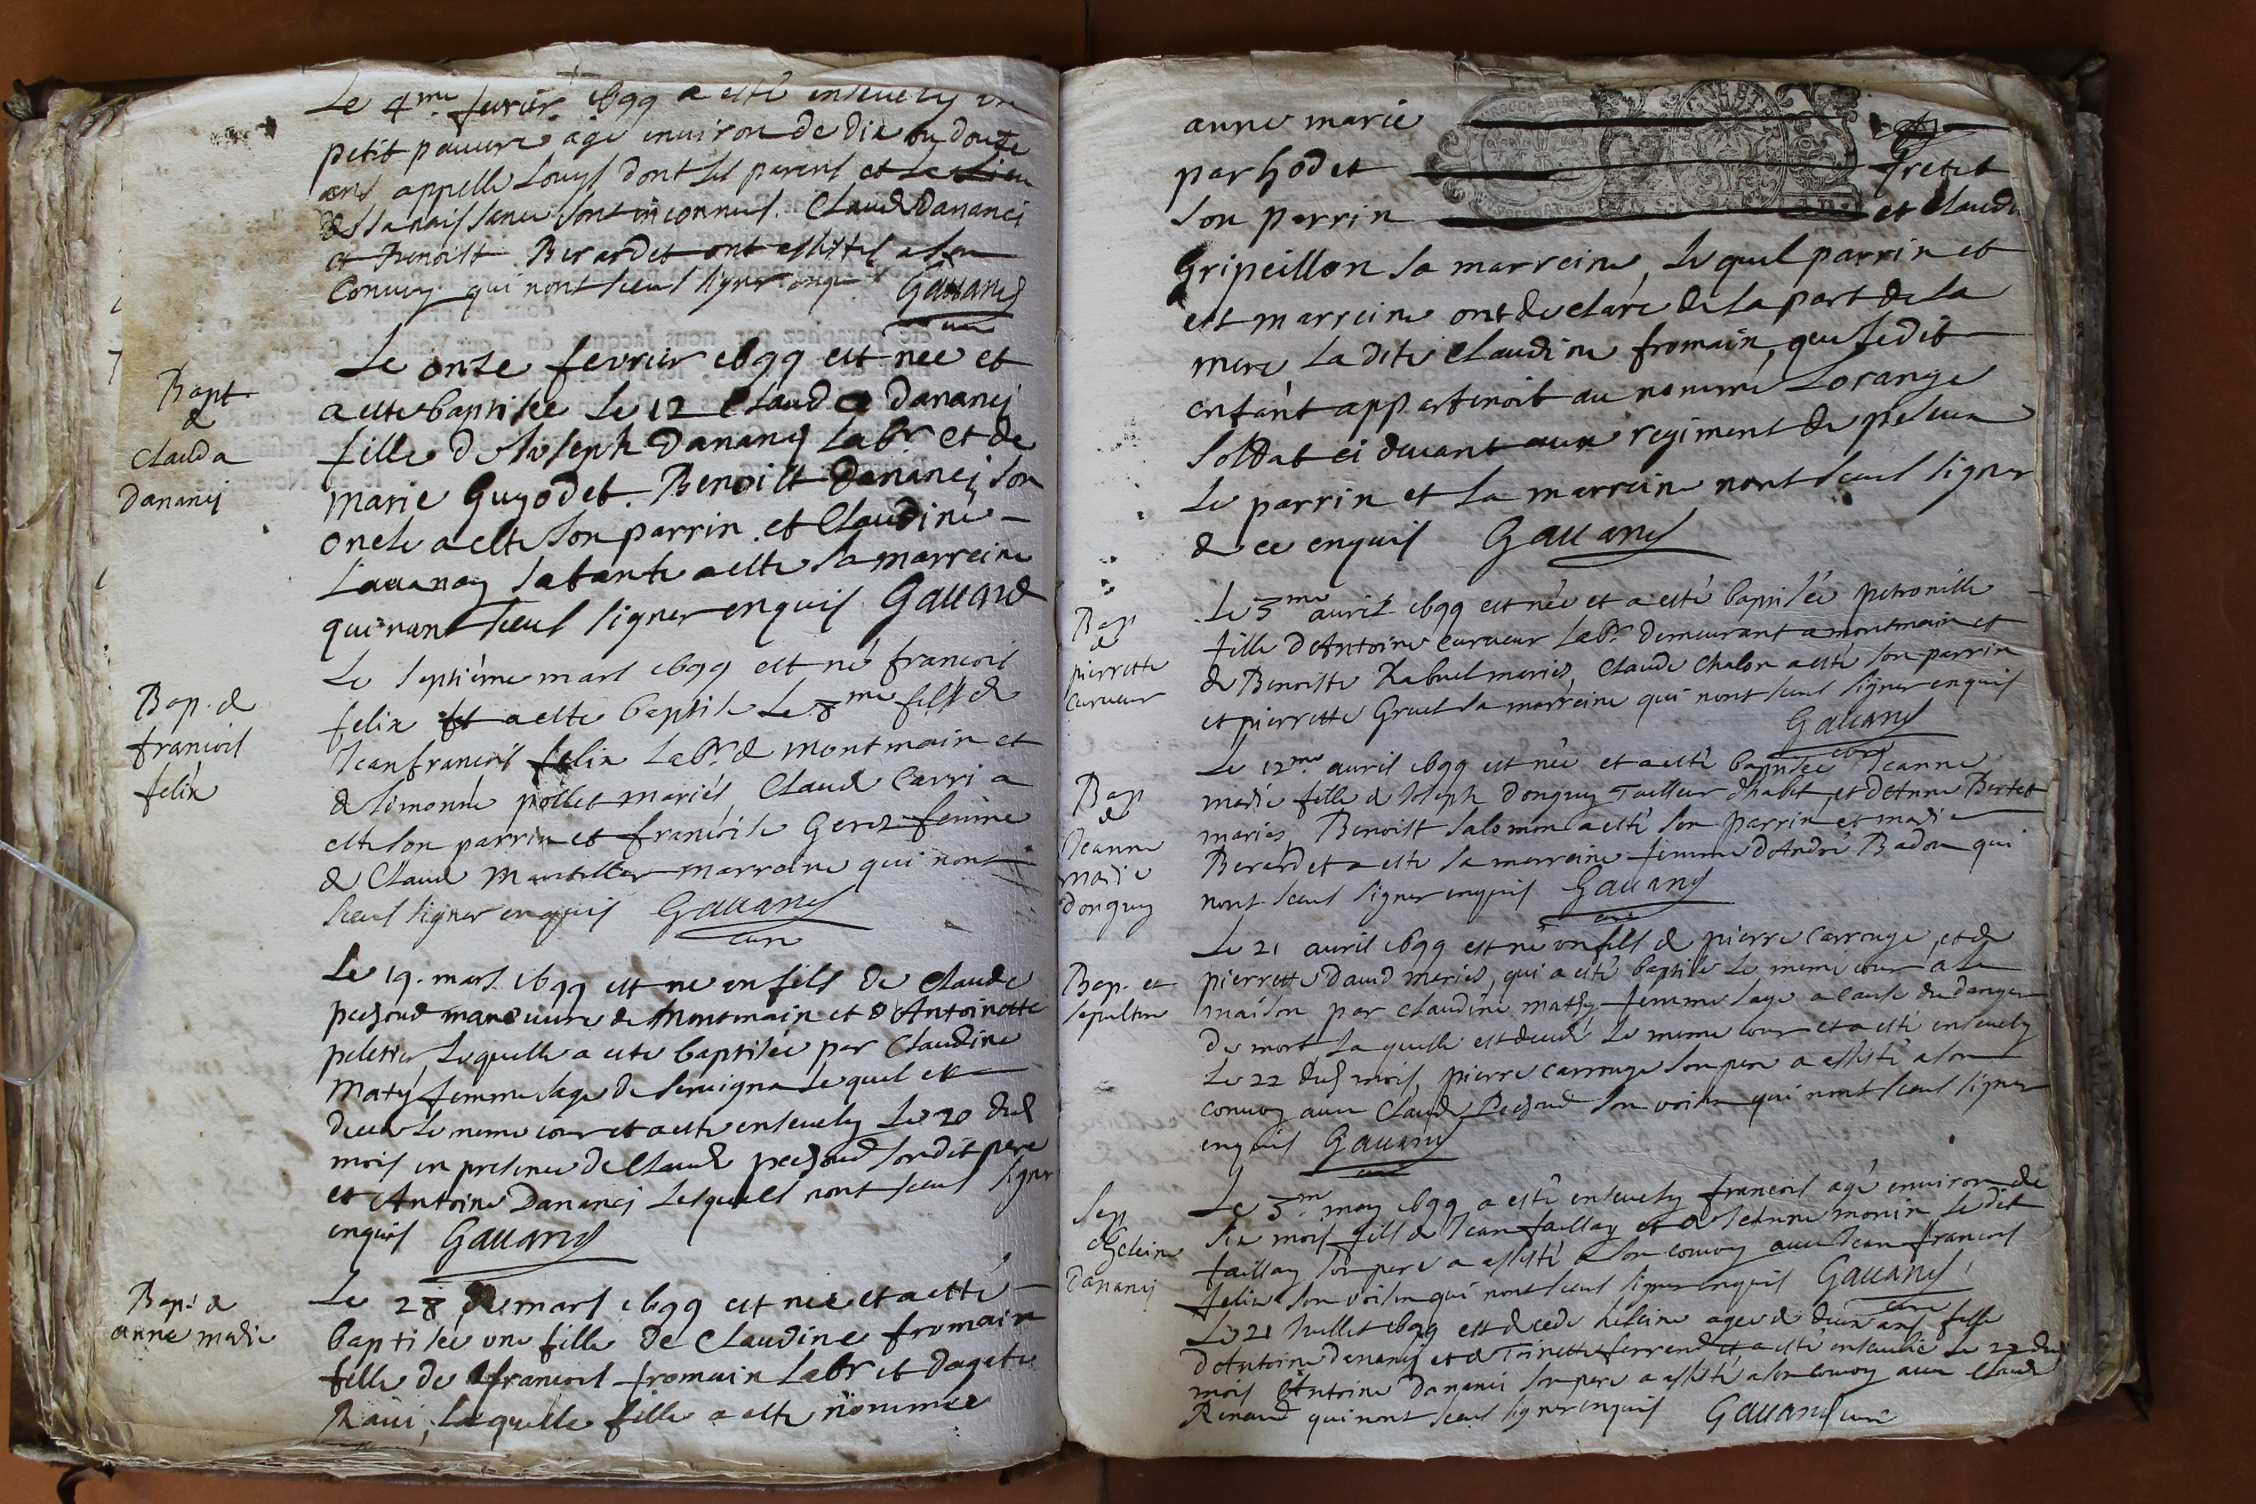 Le 4me fevrier 1699 a esté ensevely un
petit pauvre agé environ de dix ou douze
ans appellé Louys dont les parens et le lieu
de sa naissance sont inconnus. Claude Dananci
et Benoist Berardet ont assistés a son
Convoy qui nont sceus signer enqu Gauand
curé
Bapt
de
Clauda
Dananci
Le onze fevrier 1699 est née et
a esté baptisée le 12 Clauda Dananci
fille de Joseph Dananci Labr et de
marie Guyodet. Benoist Dananci son
oncle a esté son parrin et Claudine
Lauanay sa tante a esté sa marreine
qui nont sceus signer enquis Gauand
Bap. de
francois
felix
Le septième mars 1699 est né francois
felix et a esté baptisé le 8me fils de
Jean francois felix Labr. de montmain et
de simonne pollet mariés, Claude Carri a
esté son parrin et francoise Geroz femme
de Claude marreine qui nont
sceus signer enquis Gauand
curé
Le 19. mars 1699 est né un fils de Claude
pechoud manœuvre de Montmain et d'Antoinette
peletier Lequelle a esté baptisée par Claudine
Maty femme sage de servigna lequel est
decedé le meme jour et a esté ensevely le 20 dud
mois en presence de Claude pechoud son dit pere
et Antoine Dananci Lesquels nont sceus signer
enquis Gauand
Bap. de
anne marie
Le 28 de mars 1699 est née et a esté
baptisée une fille de Claudine fromain
fille de francois fromain Labr et dagate
Raui, laquelle fille a esté nommée
anne marie
par hodet fretet
son parrin et Claude
Gripeillon sa marreine, Lequel parrin et
est marreine ont declaré de la part de la
mere La dite Claudine fromain, que ledit
enfant appartenoit au nommé Lorange
soldat ci devant aux regiment de
Le parrin et la marreine nont sceus signer
de ce enquis Gauand
Bap
de
pierrette
curueur
Le 3me auril 1699 est née et a esté baptisée petronille
fille d'Antoine curueur Labr. demeurant a montmain et
de Benoiste Rabuel mariés, Claude Chalon a esté son parrin
et pierrette Gruel sa marreine qui nont sceus signer enquis
Gauand
curé
Bap
de
Jeanne
marie
donguy
Le 12me auril 1699 est née et a esté baptisée Jeanne
marie fille de Joseph donguy Tailleur d'habit et d'Anne Bertet
mariés, Benoist salomon a esté son parrin et marie
Berardet a esté sa marreine femme d'André Badon qui
nont sceus signer enquis Gauand
curé
Bap. et
sepulture
Le 21 auril 1699 est né un fils de pierre carrouge, et de
pierrette Dauid mariés, qui a esté baptisé le meme jour a la
maison par claudine mathy femme sage a cause du danger
de mort laquelle est decedé le meme jour et a esté ensevely
Le 22 dud mois, pierre carrouge son pere a assisté a son
convoy avec Claude Pechoud son voisin qui nont sceus signer
enquis Gauand
curé
Sep
Dananci
Le 3me may 1699 a esté ensevely francois agé environ de
six mois fils de Jean faillay et de Jeanne monin Ledit
faillay son pere a assisté a son convoy avec Jean francois
felix son voisin qui nont sceus signer enquis Gauand
curé
Le 21 Juillet 1699 est decede heleine agee de deux ans fille
d'Antoine Dananci et de Toinette ferrend et a esté ensevelie Le 22 dud
mois Antoine Dananci son pere a assisté a son convoy avec Claude
Renaud qui nont sceus signer enquis Gauand curé